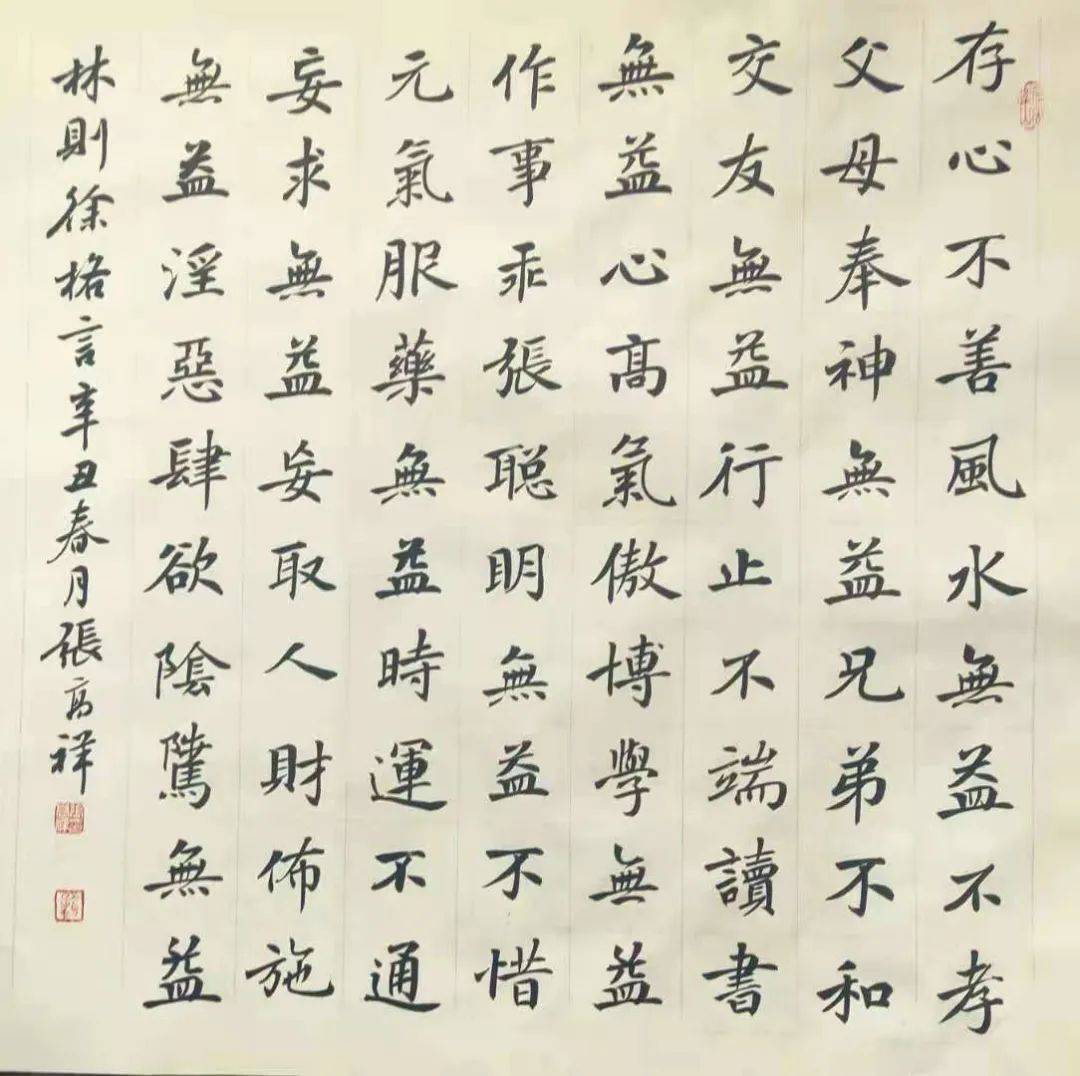 存心不善風水無益不孝
父母奉神無益兄弟不和
交友無益行止不端讀書
無益心高氣傲博學無益
作事乖張聪明無益不惜
元氣服藥無益時運不通
妄求無益妄取人財佈施
無益淫惡肆欲陰騭無益
林則徐格言辛丑春月張高祥